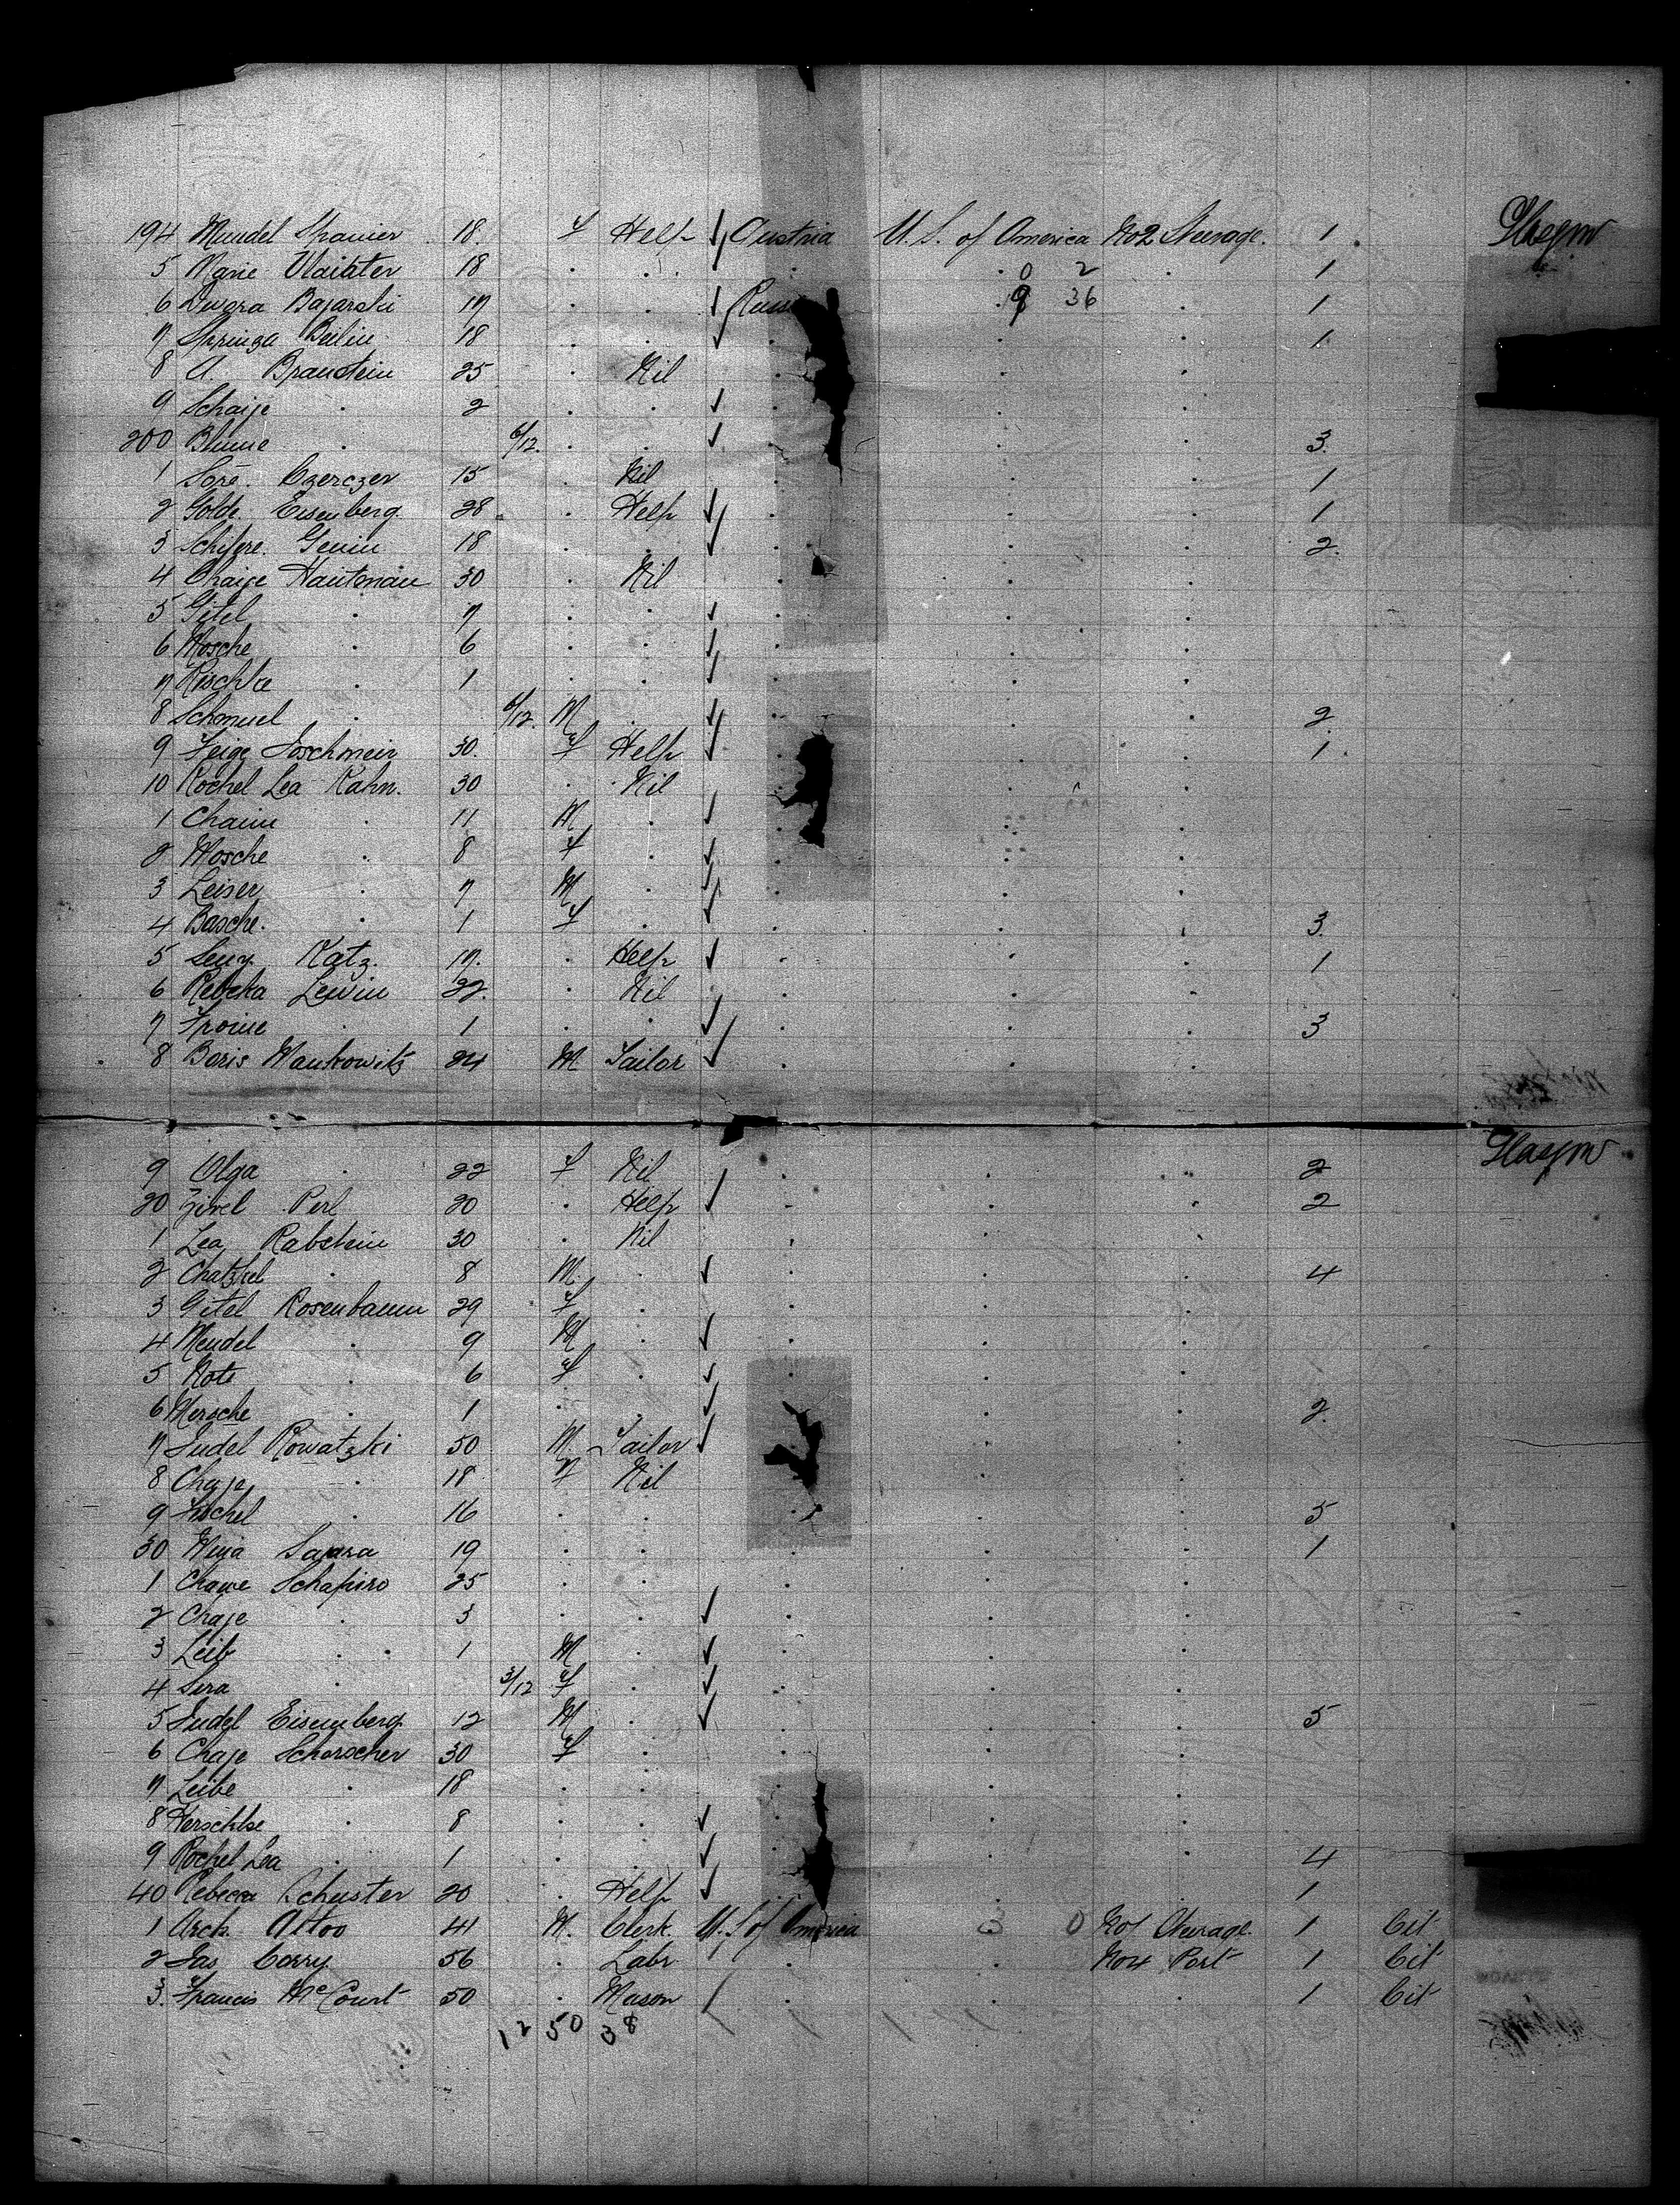 194 Mundel Spanier 18. f Help Austria U.S. of America No2 Steerage. 1 Glasgow
5 Marie 18 . . . . 0 2 . 1
6 Dwora Bajarski 17 . . Russ . 9 36 . 1
7 Sprinza Beilin 18 . . . . . 1
8 A. Braustein 25 . Nil . . .
9 Schaije . 2 . . . . .
200 Blume . 6/12. . . . . . 3.
1 Sore. Czerczer 15 . Nil . . . 1
2 Golde. Eisenberg 28 . Help . . . 1
3 Genin 18 . . . . . 2.
4 Chaije Hautman 30 . Nil . . .
5 Gitel . 7 . . . . .
6 Mosche . 6 . . . . .
7 Rischke . 1 . . . . .
8 Schmuel . 6/12. M . . . . 2
9 Feige 30. f Help . . . 1.
10 Rochel Lea Kahn. 30 . Nil . . .
1 Chaim . 11 M . . . .
2 Mosche . 8 f . . . .
3 Leiser . 7 M . . . .
4 Basche. . 1 f . . . . 3.
5 Katz. 17. . Help . . . 1
6 Rebeka Lewin 22. . Nil . . .
7 Froime . 1 . . . . . 3
8 Boris Mankowitz 24 M Tailor . . .
9 Olga . 22 f Nil . . . 2 Glasgow
20 Zirel Perl 20 . Help . . . 2
1 Lea Rabstein 30 . Nil . . .
2 Chatzkel . 8 M. . . . . 4
3 Gitel Rosenbaum 29 f . . . .
4 Mendel . 9 M . . . .
5 Note . 6 f . . . .
6 Mersche . 1 . . . . . 2.
7 Judel Kowatzki 50 M. Tailor . .
8 Chaje . 18 f Nil . .
9 Fischel . 16 . . . . . 5
30 19 . . . . . 1
1 Chawe Schapiro 25 . . . . .
2 Chaje . 3 . . . . .
3 Leib . 1 M . . . .
4 Sira . 3/12 f . . . .
5 Judel Eisenberg 12 M . . . . 5
6 Chaje Schorscher 30 f . . . .
7 Leibe . 18 . . . . .
8 Herschke . 8 . . . . .
9 Rochel Lea . 1 . . . . . 4
40 Rebecca Schuster 20 . Help . . 1
1 Arch. 41 M. Clerk. U.S. of America 0 No1 Steerage. 1 Cit
2 Jas Corry 56 . Labr . . No4 Port 1 Cit
3. Francis McCourt 50 . Mason . . 1 Cit
12 50 38